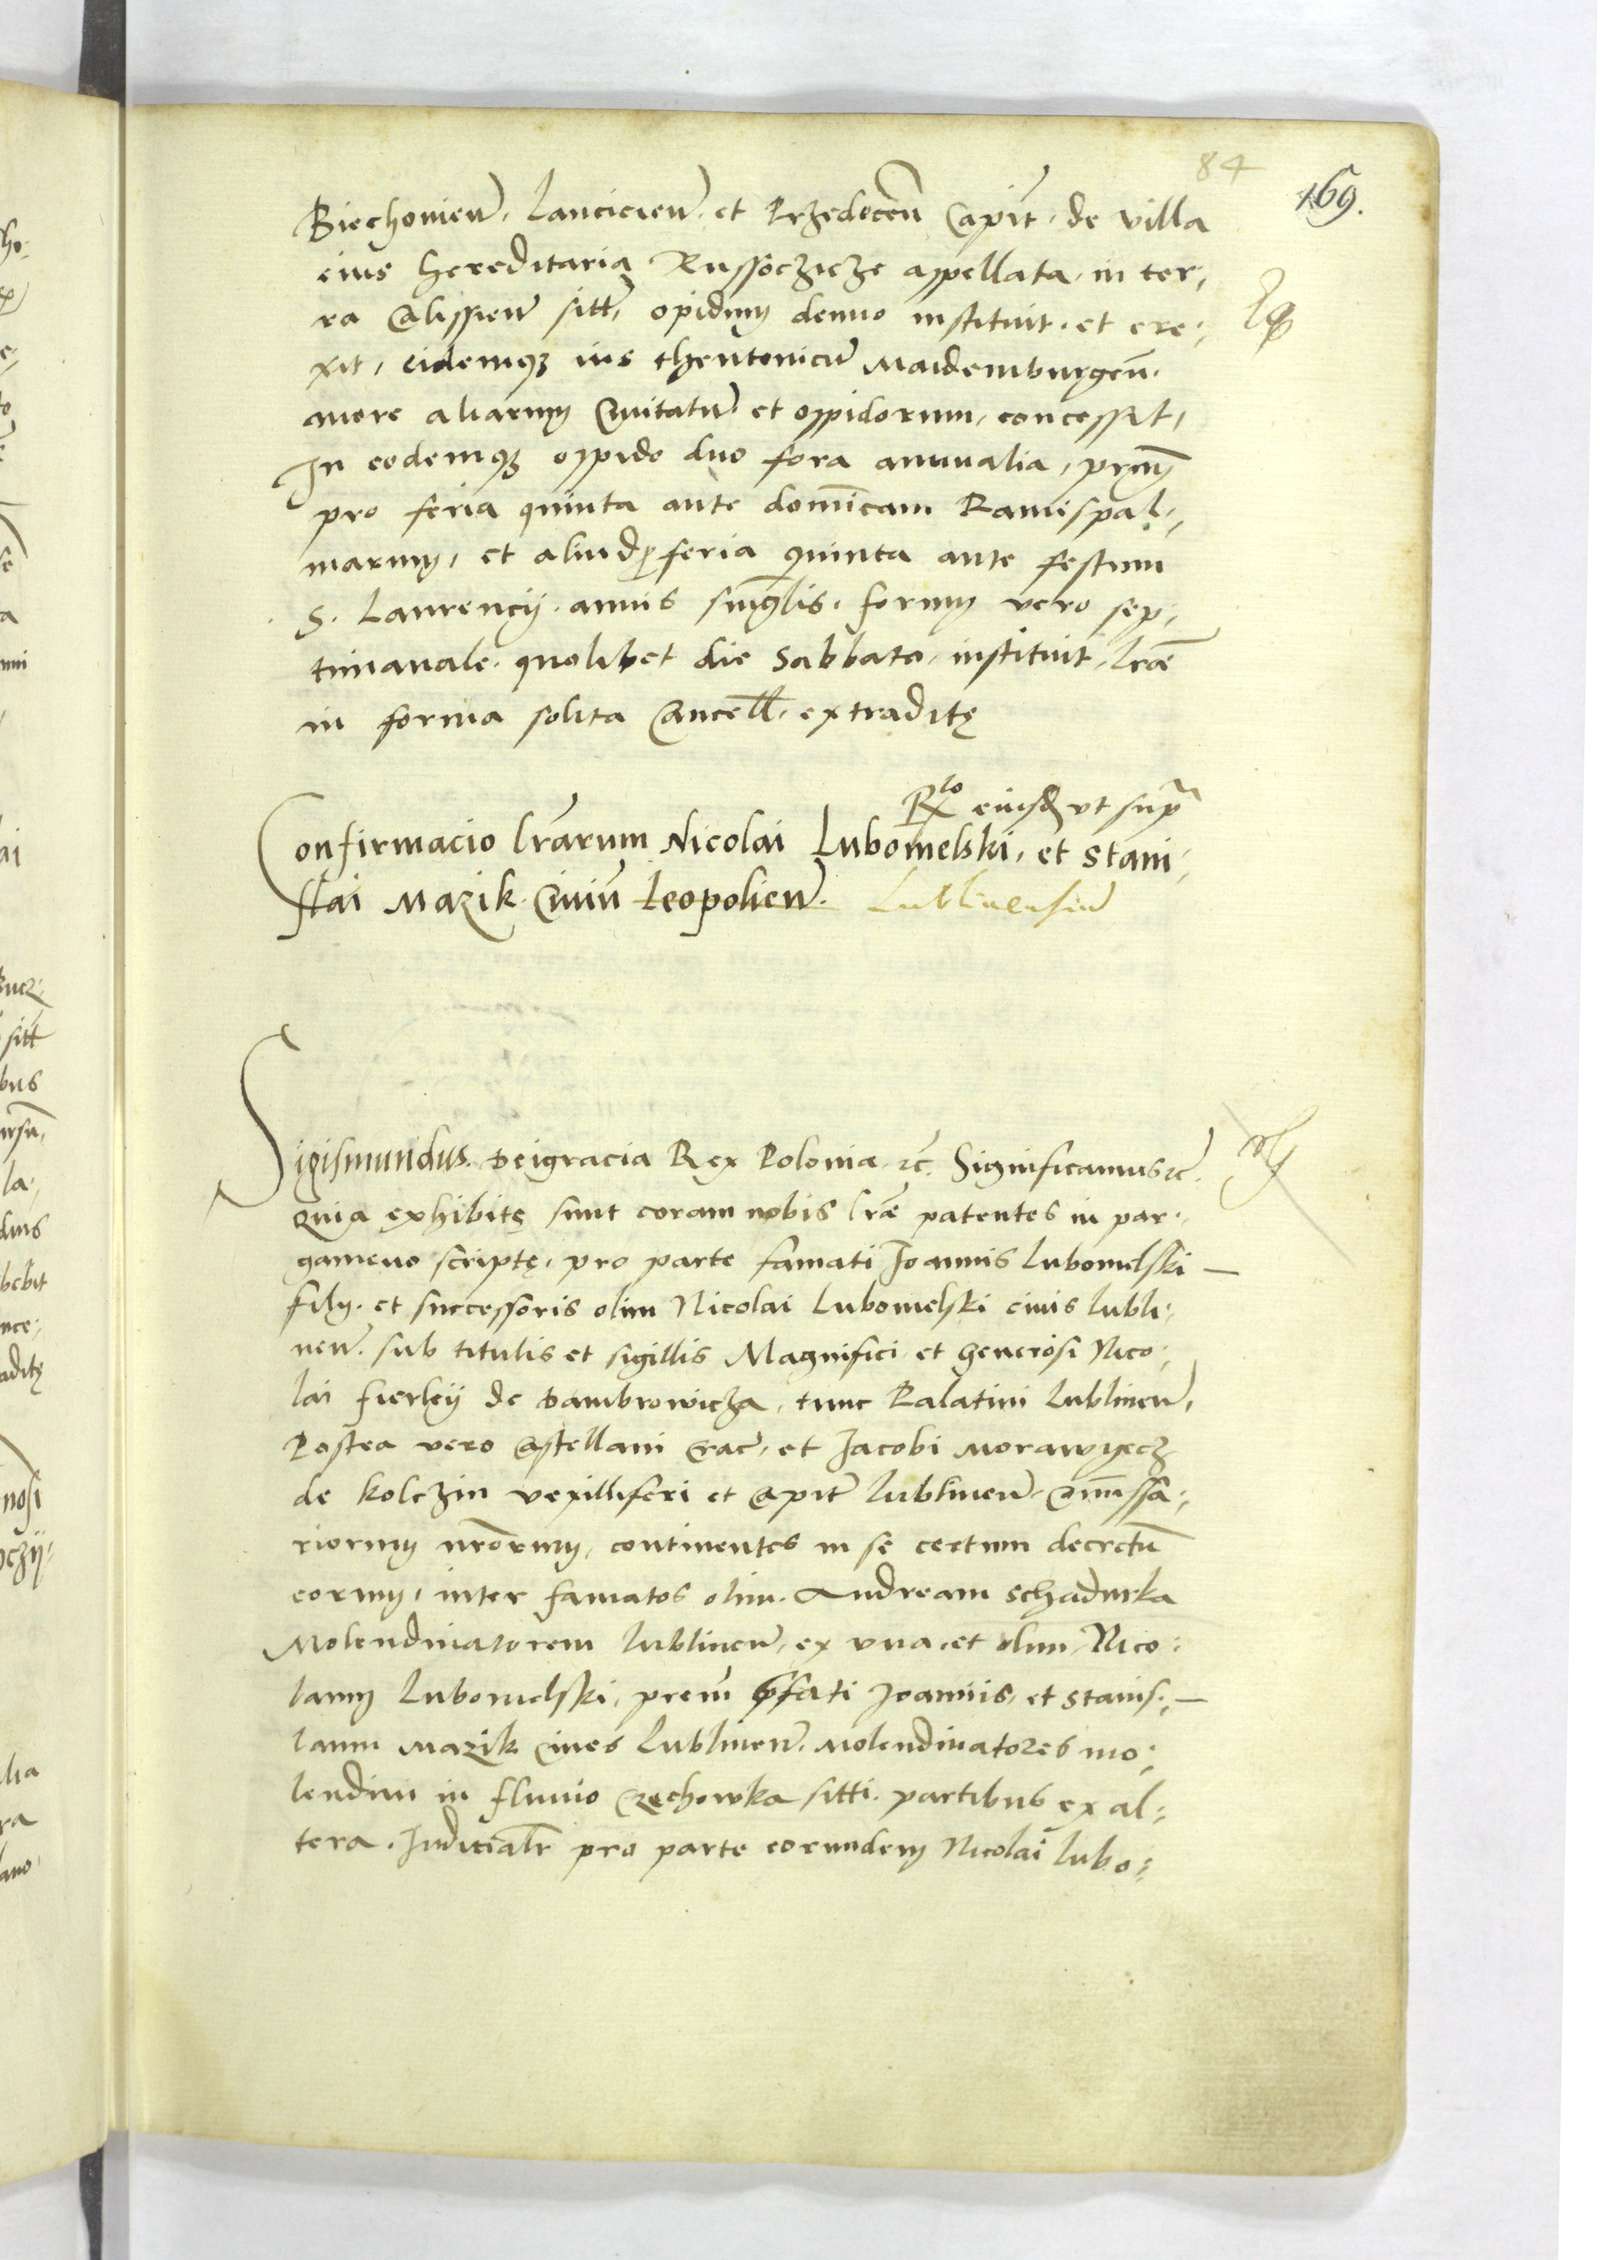 84
169.
Biechouien̄, lancicien̄, et Przedecen̄ Capit̄, de villa
eius hereditaria Russoczicze appellata, in ter,
ra Calissien̄ sitt̄, opidum denuo instituit, et ere,
xit, eidemqꝫ ius theutonicū Maidemburgen̄,
more aliarum Civitatū et oppidorum, concessit,
In eodemqꝫ oppido duo fora annualia, primū
pro feria quinta ante dominicam Ramispal,
marum, et aliud ꝓ feria quinta ante festum
S. Laurencij, annis singlis, forum vero sep,
timanale, quolibet die Sabbato, instituit, lr̄ae
in forma solita Cancell̄, extraditę
R̄lo eiusd̄ ut supra
Confirmacio lr̄arum Nicolai Lubomelski, et Stani,
slai Mazik Civiū Leopolien̄. Lublinensiū
Sigismundus Deigracia Rex Polonia ꝛc̄. Significamus ꝛc̄.
Quia exhibitę sunt coram nobis lr̄ae patentes in par,
gameno scriptę, pro parte famati Joannis Lubomelski
filij, et successoris olim Nicolai Lubomelski civis lubli,
nen̄. sub titulis et sigillis Magnifici et Generosi Nico,
lai fierleÿ de Dambrowicza, tunc Palatini lublinen̄,
Postea vero Castellani Crac̄, et Jacobi Morawyecz
de kolczin vexilliferi et Capit̄ lublinen̄ Com̄issa,
riorum nr̄orum, continentes in se certum decretū
eorum, inter famatos olim Andream Schadurka
Molendinatorem lublinen̄, ex una, et olim Nico,
laum Lubomelski, pren̄ p̄fati Joannis, et Stanis,
laum Mazik Cives Lublinen̄. Molendinatores mo,
lendini in fluvio Czechowka sitti. partibus ex al,
tera, Judicialr̄ pro parte eorundem Nicolai lubo,